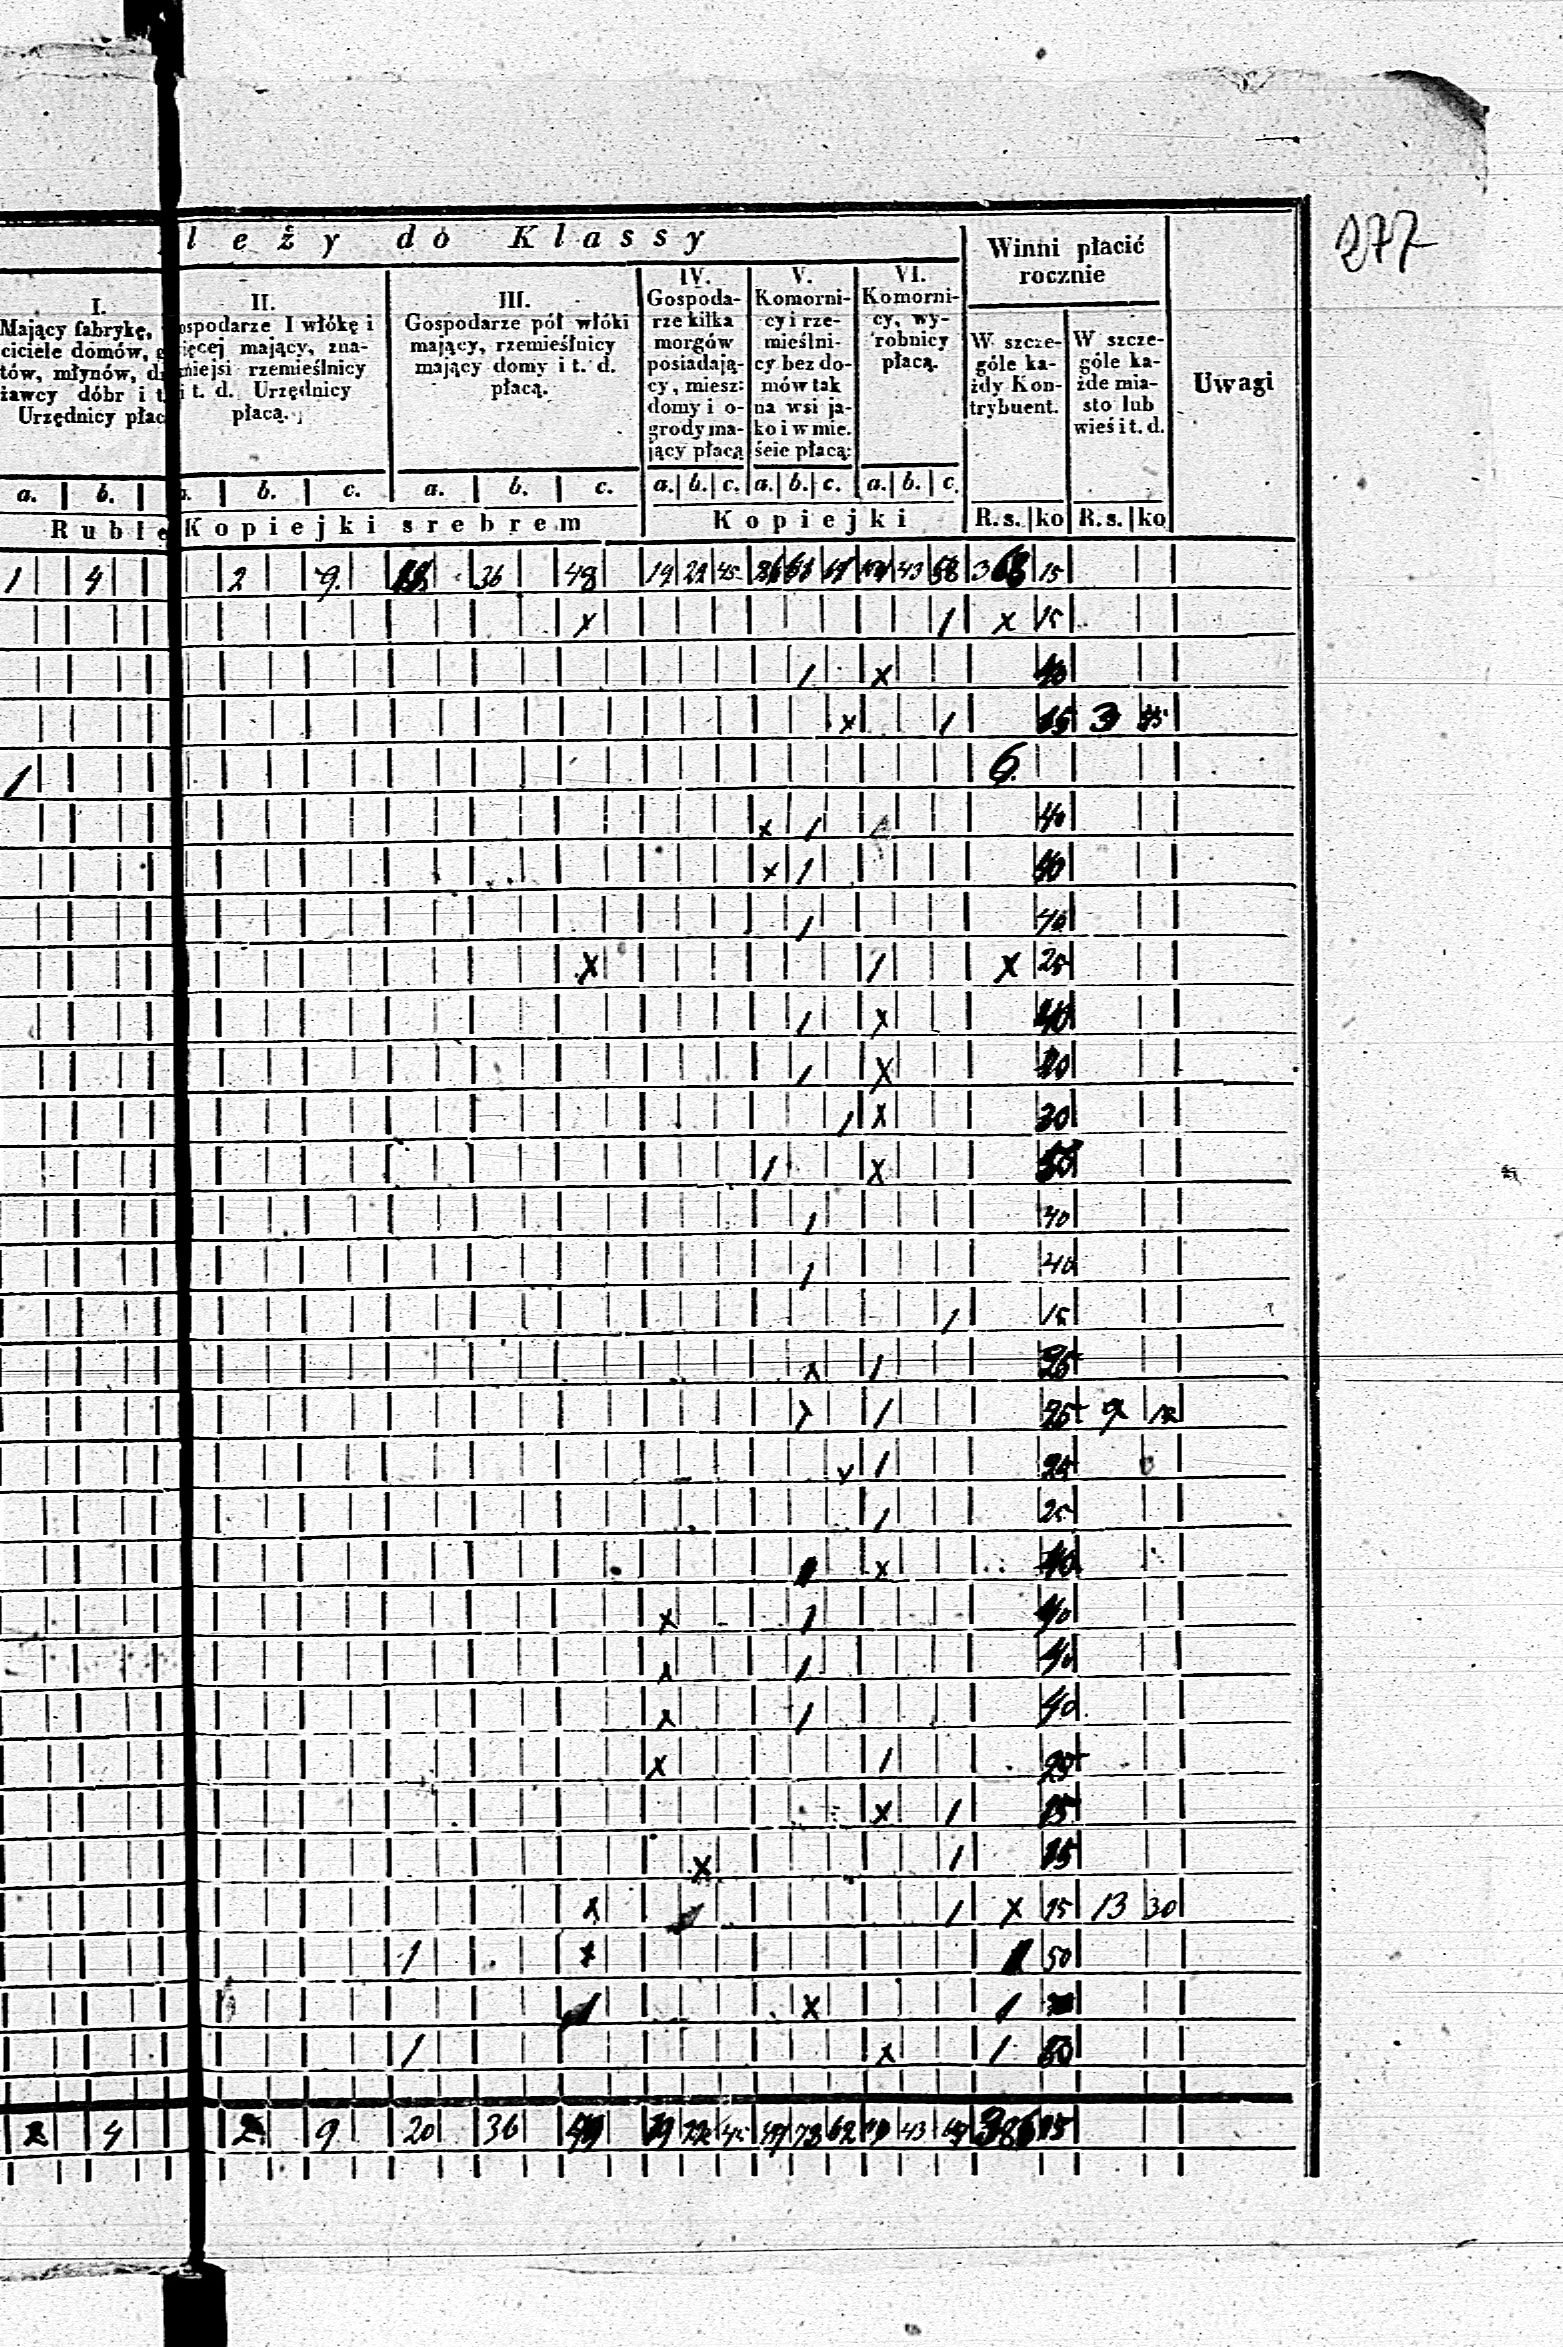 277
leży do Klassy
Winni płacić
rocznie
Uwagi
I.
Mający fabrykę,
ciciele domów, g
tów, młynów, d
żawcy dóbr i t.
Urzędnicy płac
II.
ospodarze I włókę i
ięcej mający, zna-
niejsi rzemieślnicy
i t. d. Urzędnicy
płacą.
III.
Gospodarze pół włóki
mający, rzemieślnicy
mający domy i t. d.
płacą.
IV.
Gospoda-
rze kilka
morgów
posiadają-
cy, miesz:
domy i o-
grody ma-
jący płacą
V.
Komorni-
cy i rze-
mieślni-
cy bez do-
mów tak
na wsi ja-
ko i w mie.
ście płacą:
VI.
Komorni-
cy, wy-
robnicy
płacą.
W szcze-
góle ka-
żdy Kon-
trybuent.
W szcze-
góle ka-
żde mia-
sto lub
wieś i t. d.
a. b. a. b. c. a. b. c. a. b. c. a. b. c. a. b. c.
Ruble Kopiejki srebrem Kopiejki R.s. ko R.s. ko
1 4 2 9 36 48 19 22 45 43 58 368 15
x 1 x 15
1 x 40
x 1 15 3
1 6
x 1 40
x 1 40
1 40
x 1 x 25
1 x 40
1 x 40
1 x 30
1 x 50
1 40
1 40
1 15
x 1 25
x 1 25 9
x 1 25
1 25
1 x 40
x 1 40
x 1 40
x 1 40
x 1 25
x 1 15
x 1 15
x 1 x 15 13 30
1 x 1 50
1 x 1
1 x 1 50
2 4 2 9 20 36 49 19 22 45 49 78 62 43 386 95